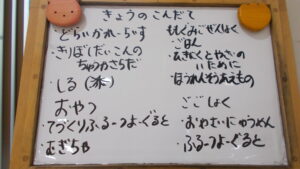 きょうのこんだて
・どらいかれーらいす
・きりぼしだいこんの
ちゅうかさらだ
・しる
おやつ
・てづくりふるーつよーぐると
・むぎちゃ
もぐもぐぜんはんしょく
ごはん
やさいの
いために
・ほうれんそうあえもの
ごごしょく
・おやさいにゅうめん
・ふるーつよーぐると